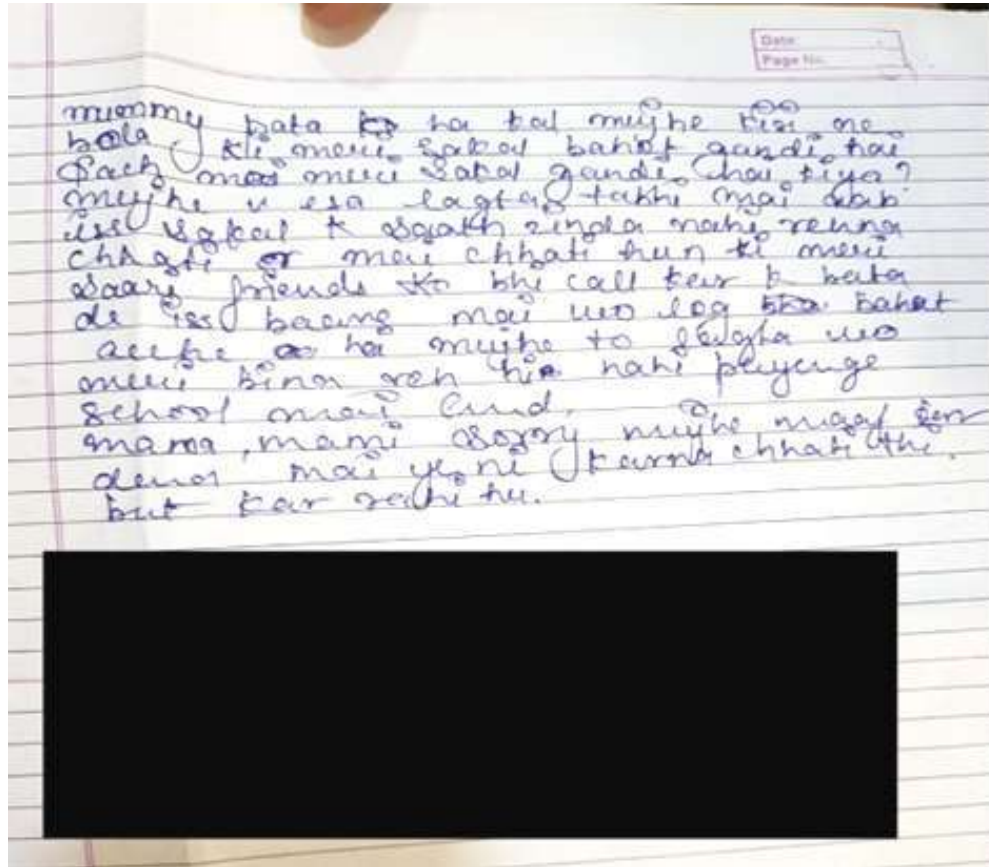 Date
Page No.
mummy pata ha kal mujhe kisi ne
bola ki meri sakal bahot gandi hai
Sach mai meri sakal gandi hai kiya?
mujhe v esa lagta takhi mai aab
iss sakal k saath zinda nahi rehna
chhati or mai chhati hun ki meri
saare friends ko bhi call ker k bata
de iss baare mai wo log bahot
acche ha mujhe to wo
meri bina reh hi nahi payenge
school mai
mama, mami sorry mujhe maaf ker
dena mai ye ni karna chhati thi.
but kar rahi hu.